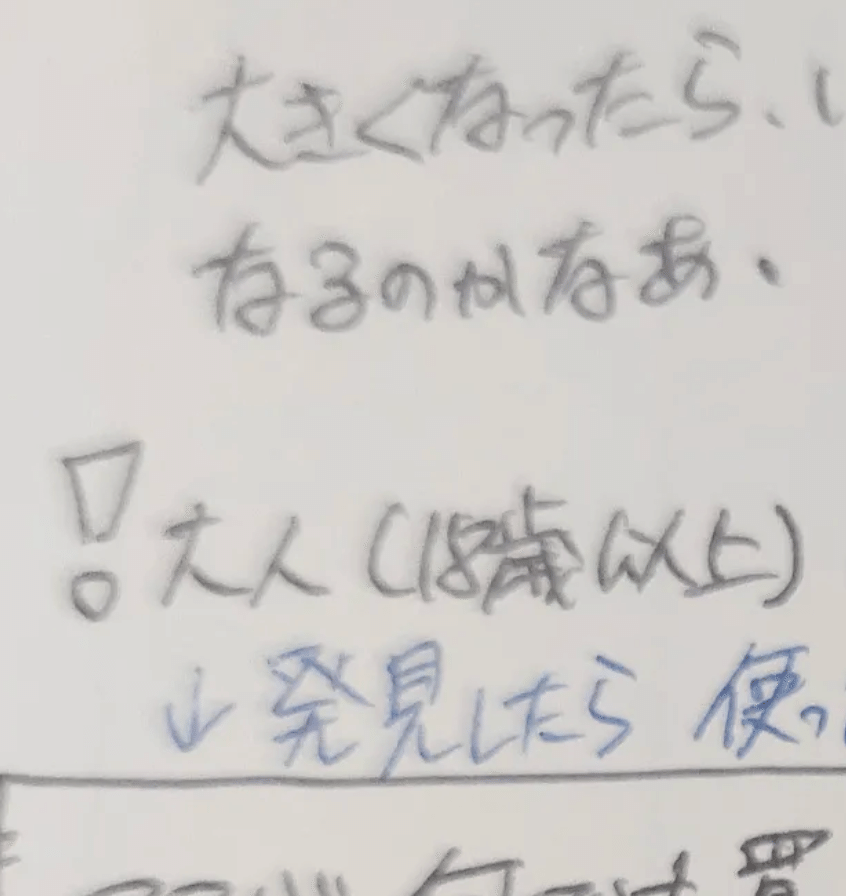 大きくなったら、
なるのかなあ、
！大人（18歳以上）
↓発見したら 使っ